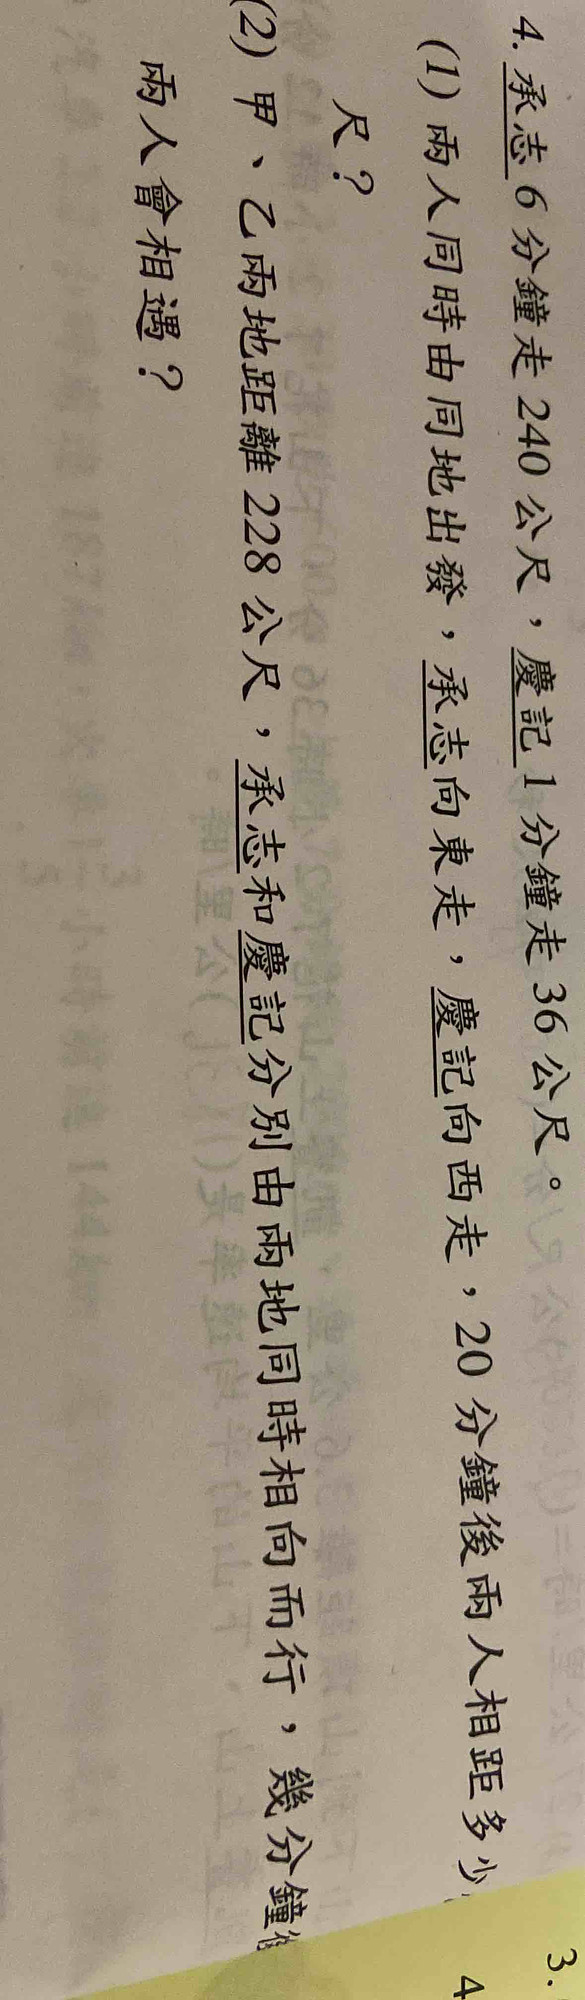 4. 承志6分鐘走240公尺，慶記1分鐘走36公尺。
(1) 兩人同時由同地出發，承志向東走，慶記向西走，20分鐘後兩人相距多少
尺？
(2) 甲、乙兩地距離228公尺，承志和慶記分別由兩地同時相向而行，幾分鐘
兩人會相遇？
3.
4